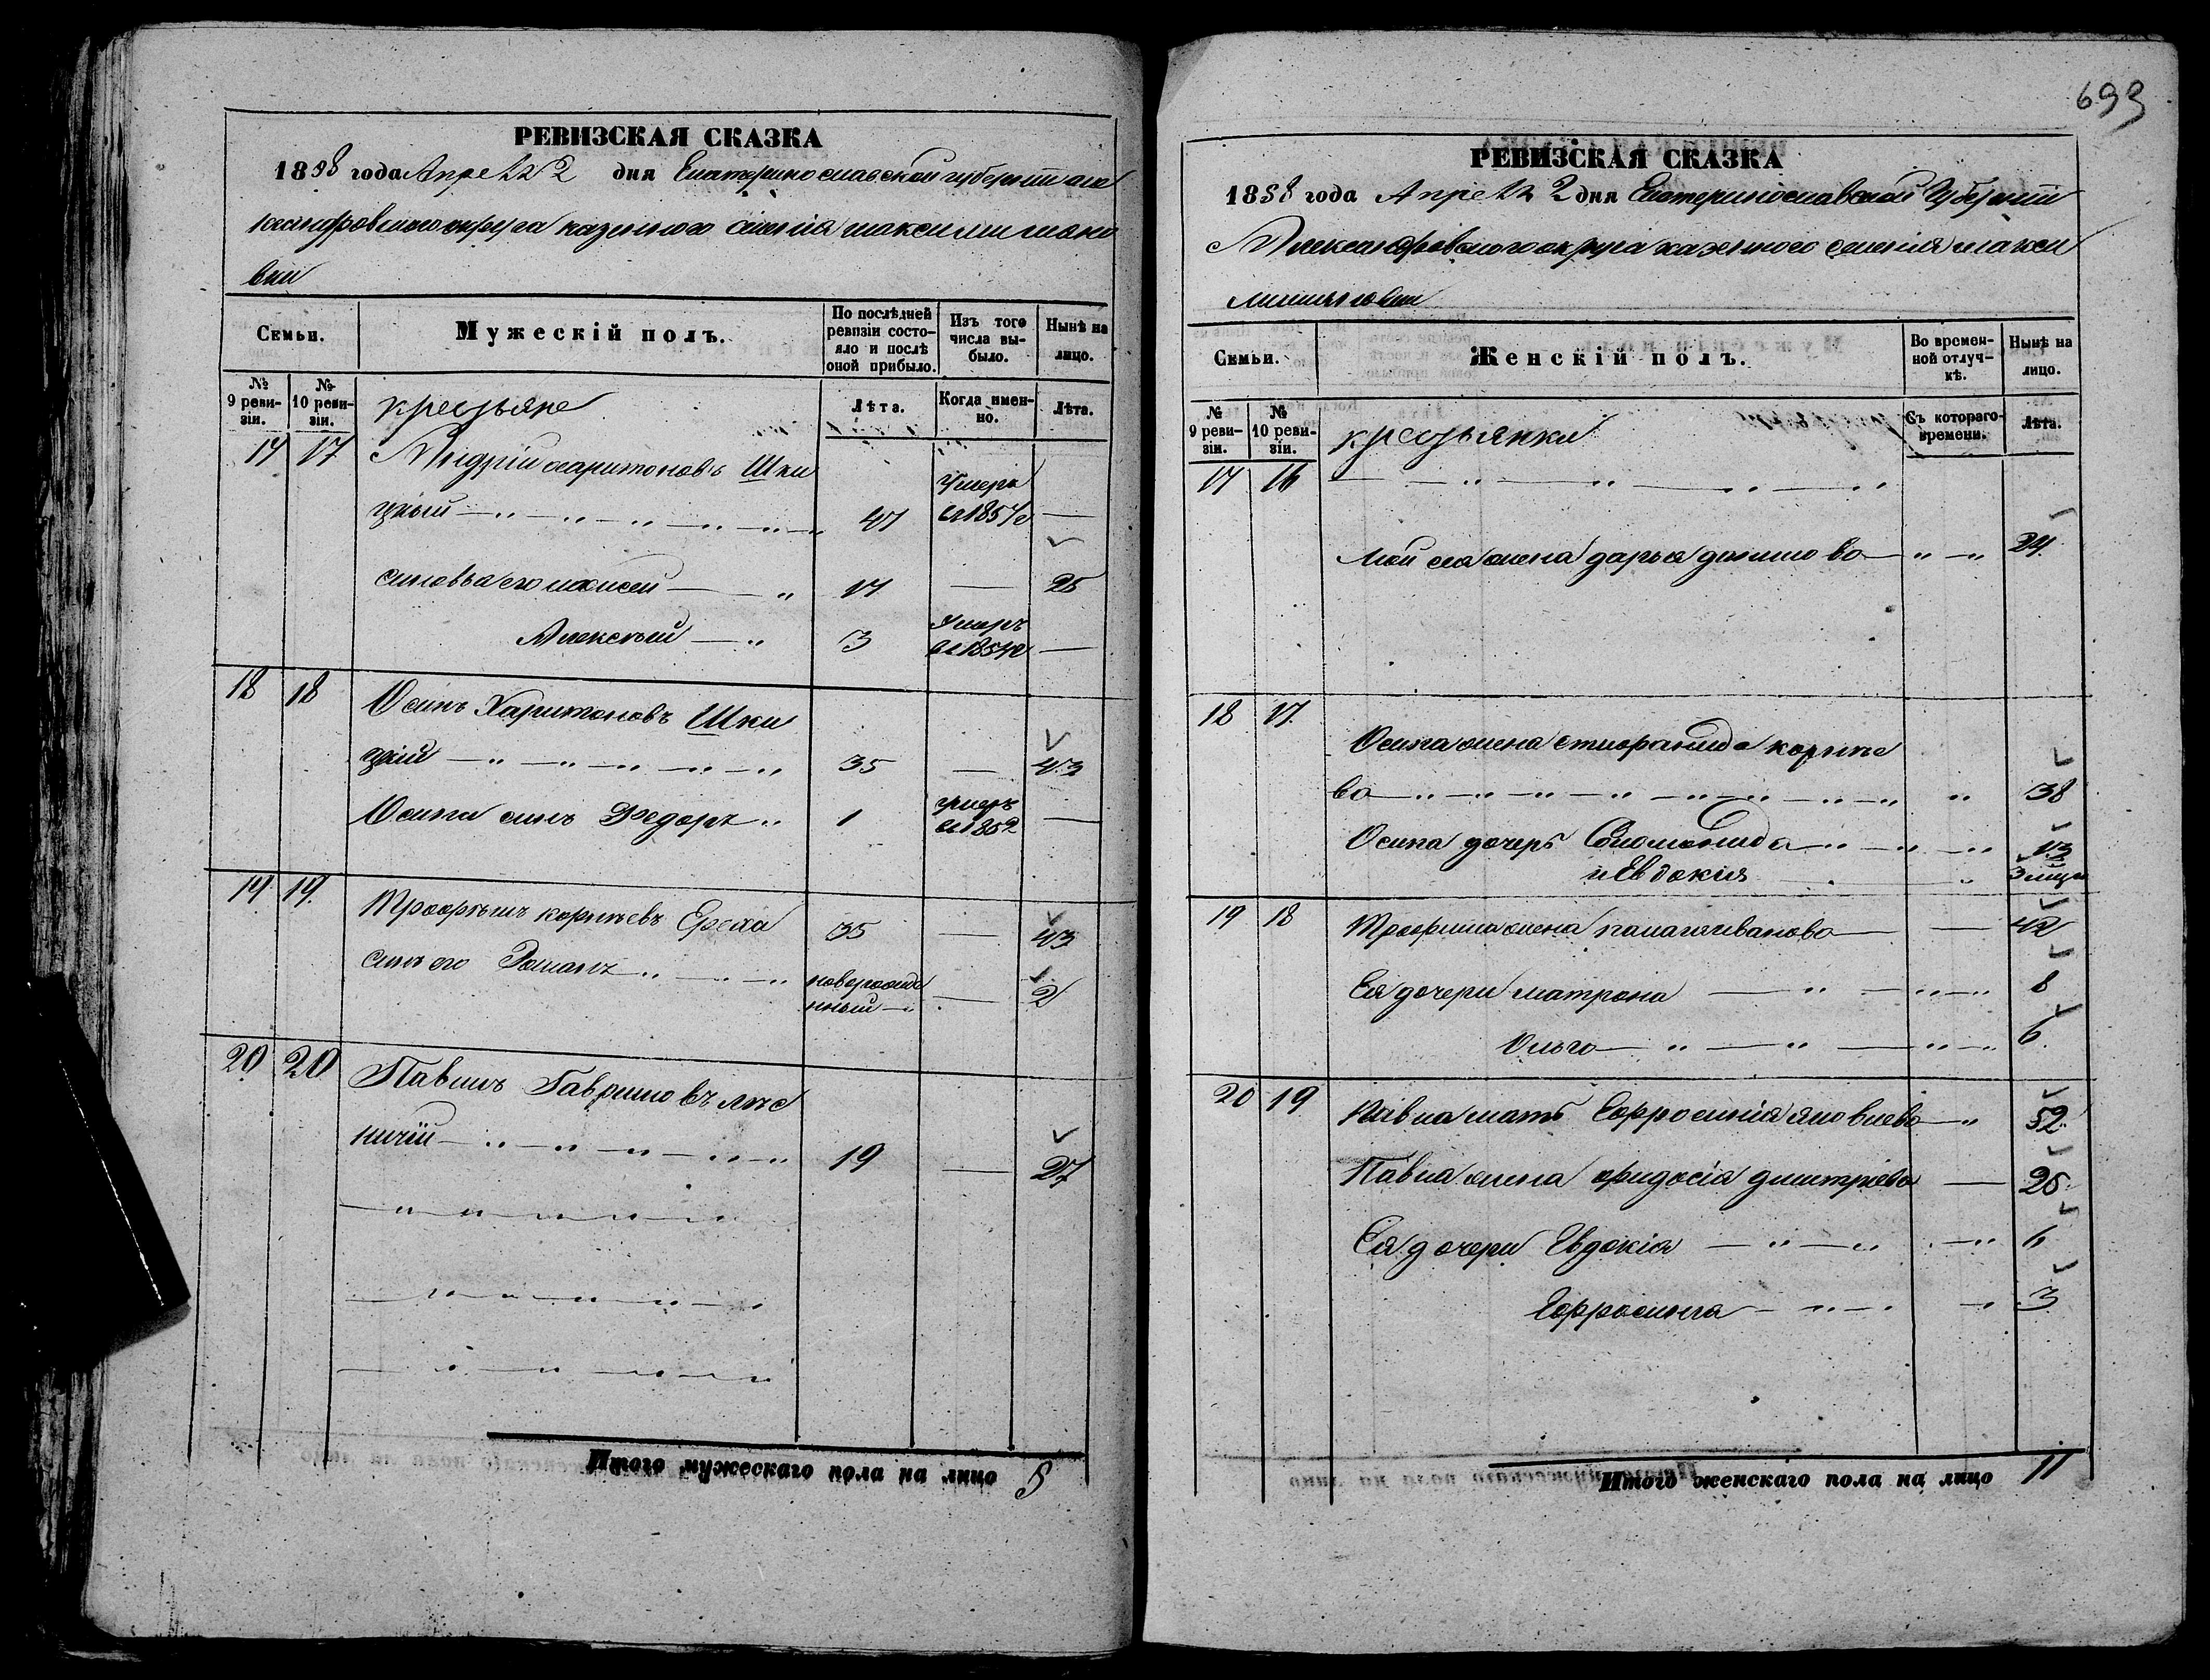 693
РЕВИЗСКАЯ СКАЗКА
1858 года Апреля 2 дня Екатеринославской губернии але
ксандровского округа казенного селенія максимилиано
вки
Семьи.
Мужескій полъ.
По послѣдней ревизіи состояло и послѣ оной прибыло.
Изъ того числа выбыло.
Нынѣ на лицо.
№ 9 ревизіи.
№ 10 ревизіи.
крестьяне
Лѣта.
Когда именно.
Лѣта.
17 17 Андрій харитоновъ Шки
цкый 47 Умеръ въ 1857 г
синовья его моисей 17 — 25
Алексѣй 3 Умеръ въ 1854 г —
18 18 Осипъ Харитоновъ Шки
цкій 35 — 43
Осипа синъ Федоръ 1 умеръ въ 1852 —
19 19 Трофимъ корнѣевъ Ереха 35 — 43
синъ его Романъ новорожденный — 2
20 20 Павилъ Гавриловъ лѣс
ничій 19 — 27
Итого мужескаго пола на лицо 5
РЕВИЗСКАЯ СКАЗКА
1858 года Апреля 2 дня Екатеринославской Губерніи
Александровского округа казенного селенія макси
милияновки
Семьи.
Женскій полъ.
Во временной отлучкѣ.
Нынѣ на лицо.
№ 9 ревизіи.
№ 10 ревизіи.
крестьянки
Съ котораго времени.
Лѣта.
17 16
Мойсея жена дарья данилова 24
18 17 Осипа жена степанида корнѣе
ва 38
Осипа дочерь Соломонида 13
и Евдокия 3 мцы
19 18 Трофима жена палагия иванова — 42
Ея дочери матрона 8
Ольга 6
20 19 Павла мать Ефросинія яковлева 52
Павла жена фидосія дмитріева — 25
Ея дочери Евдокія 6
Ефросинья 3
Итого женскаго пола на лицо 11